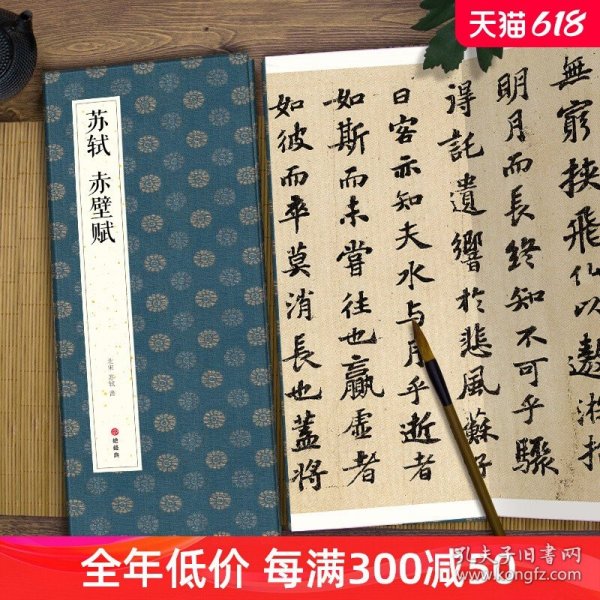 天猫618
苏轼 赤壁赋
北宋 苏轼 书
無窮挾飛仙以遨游抱
明月而長終知不可乎驟
得託遺響於悲風蘇子
曰客亦知夫水与月乎逝者
如斯而未嘗往也贏虛者
如彼而卒莫消長也蓋將
全年低价 每满300减50
孔夫子旧书网
www.kongfz.com